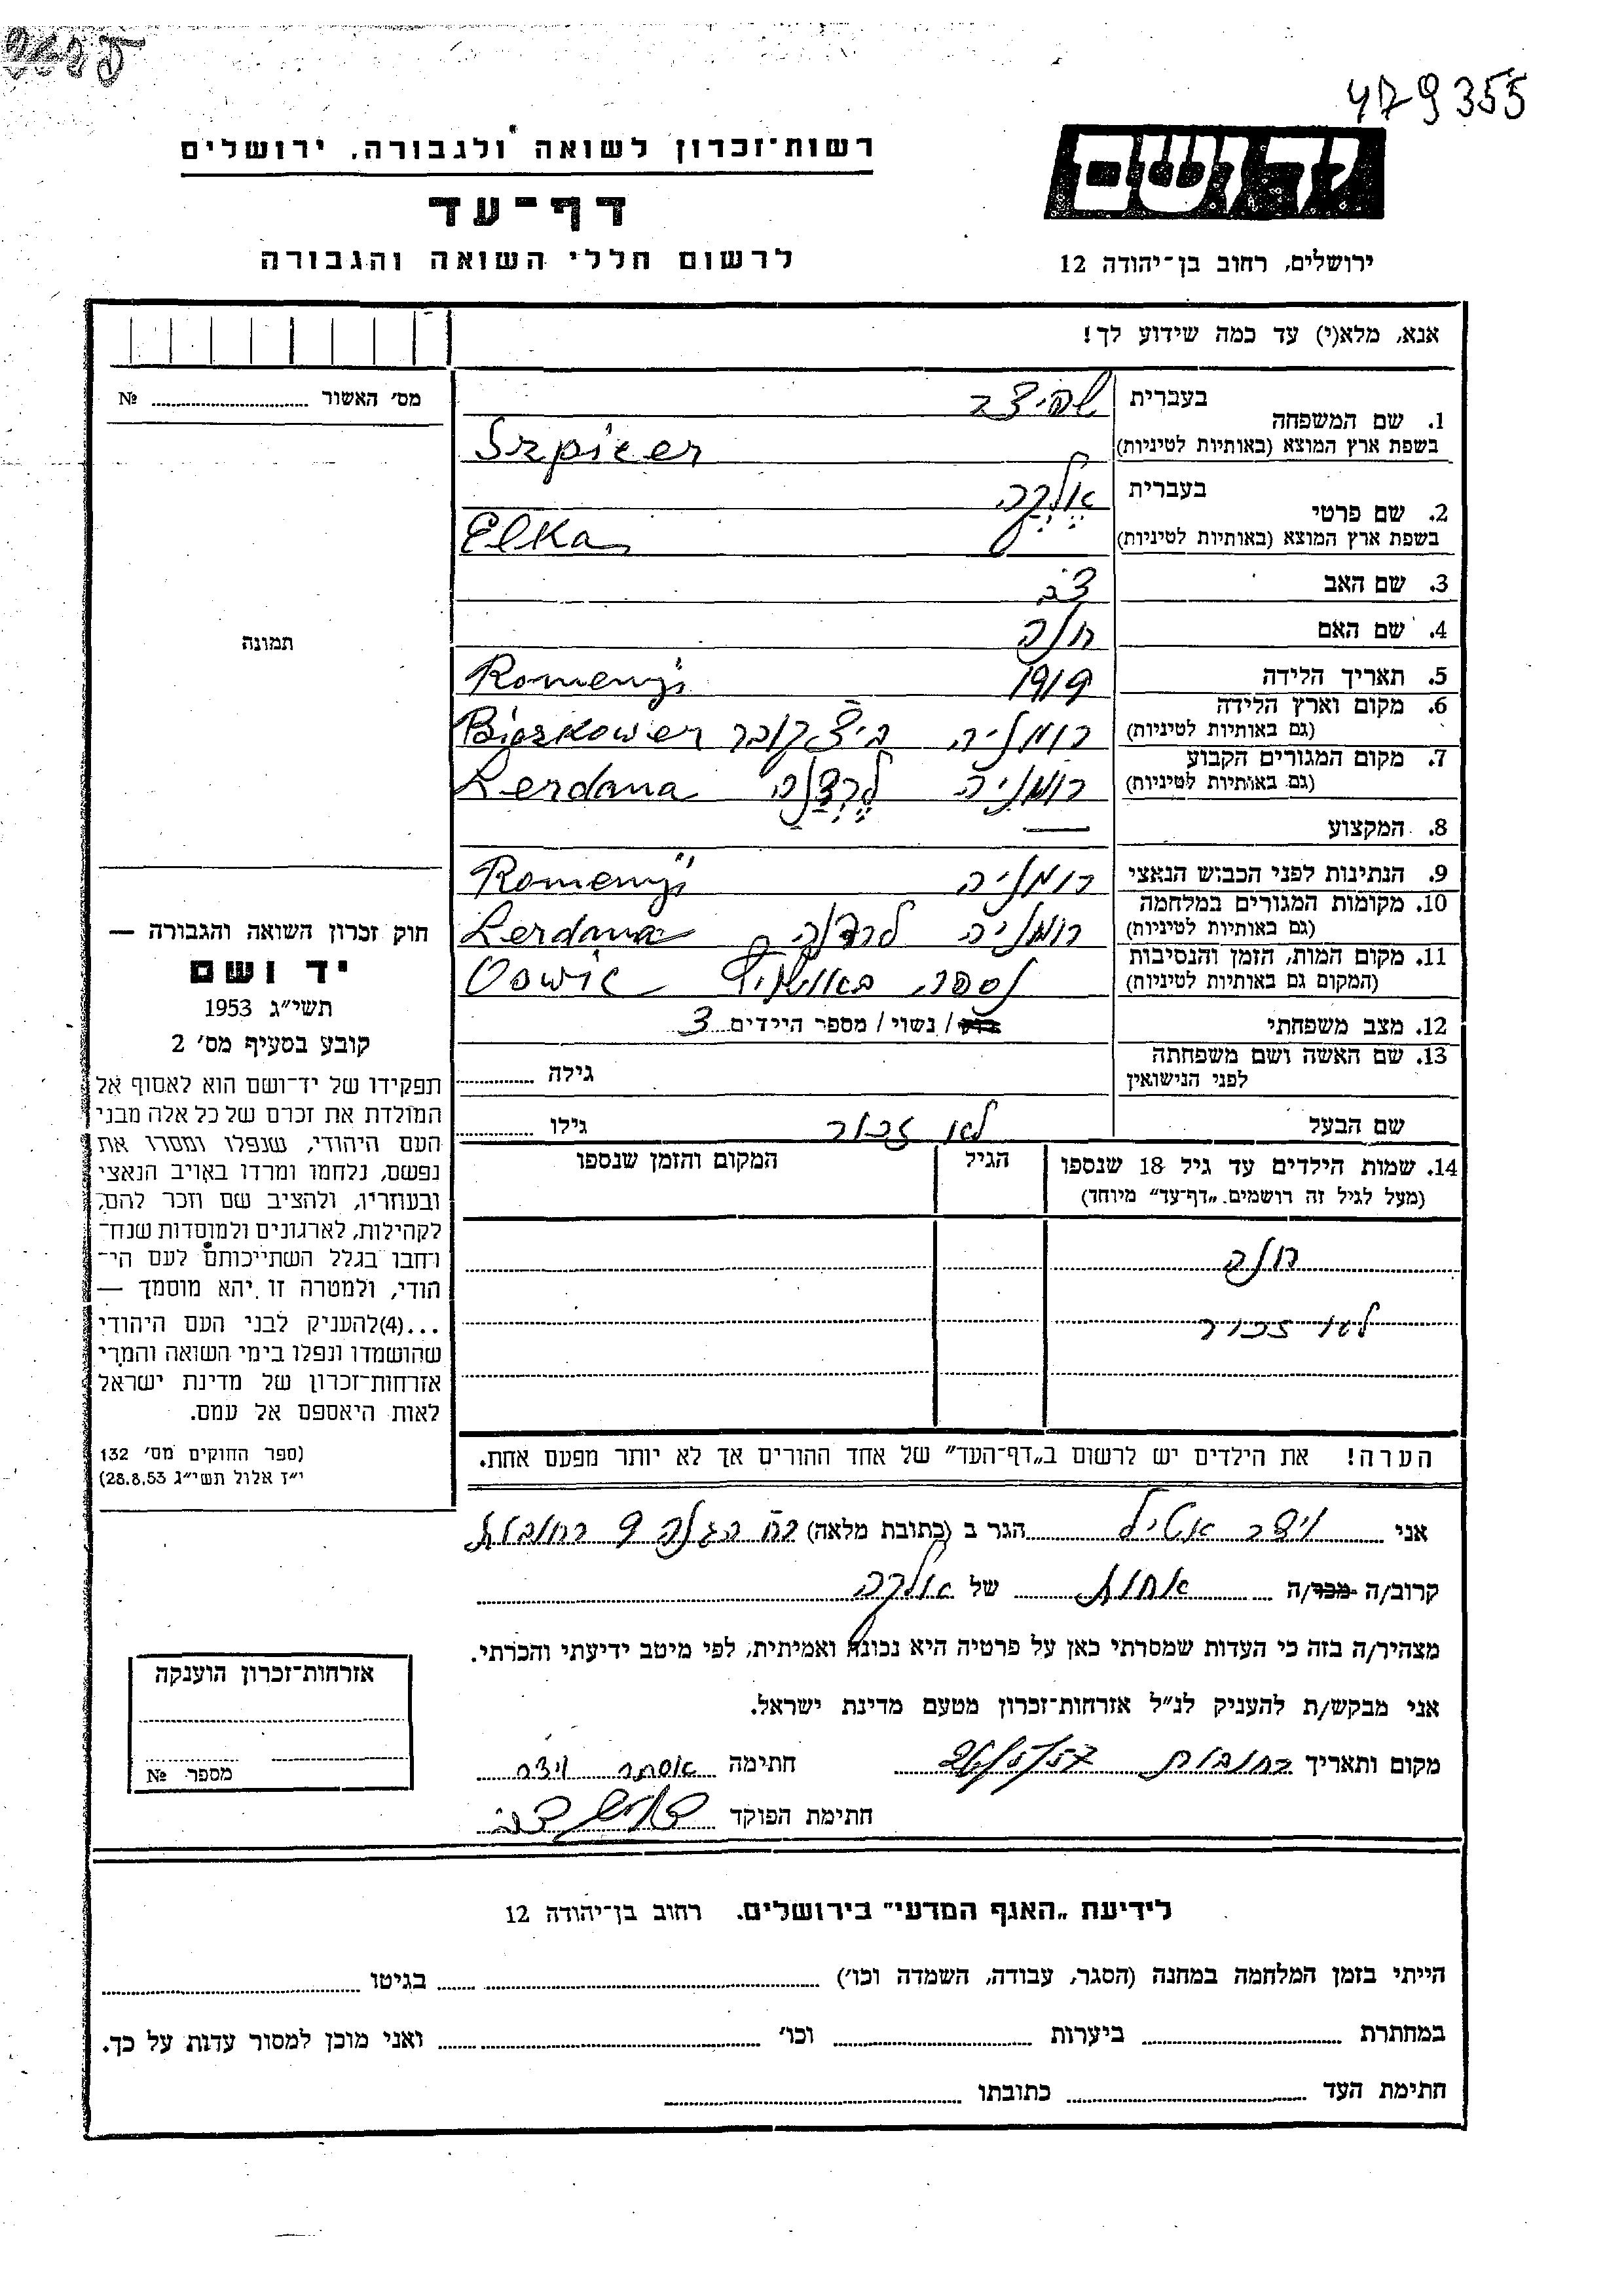 479355
רשות־זכרון לשואה ולגבורה, ירושלים
דף־עד
לרשום חללי השואה והגבורה
ידושם
ירושלים, רחוב בן־יהודה 12
אנא, מלא(י) עד כמה שידוע לך!
מס׳ האשור № 
1. שם המשפחה
בעברית שפיצר
בשפת ארץ המוצא (באותיות לטיניות) Szpicer
2. שם פרטי
בעברית אלקה
בשפת ארץ המוצא (באותיות לטיניות) Elka
3. שם האב צבי
4. שם האם חנה
5. תאריך הלידה 1919 Romenji
6. מקום וארץ הלידה
(גם באותיות לטיניות) רומניה ביצקובר Biczkower
7. מקום המגורים הקבוע
(גם באותיות לטיניות) רומניה לרדנה Lerdana
8. המקצוע —
9. הנתינות לפני הכבוש הנאצי רומניה Romenji
10. מקומות המגורים במלחמה
(גם באותיות לטיניות) רומניה לרדנה Lerdana
11. מקום המות, הזמן והנסיבות
(המקום גם באותיות לטיניות) נספה
12. מצב משפחתי רווק / נשוי / מספר הילדים 3
13. שם האשה ושם משפחתה
לפני הנישואין גילה
שם הבעל לא זכור גילו
14. שמות הילדים עד גיל 18 שנספו הגיל המקום והזמן שנספו
(מעל לגיל זה רושמים „דף־עד״ מיוחד)
חנה
לא זכור
הערה! את הילדים יש לרשום ב„דף־העד״ של אחד ההורים אך לא יותר מפעם אחת.
תמונה
חוק זכרון השואה והגבורה —
יד ושם
תשי״ג 1953
קובע בסעיף מס׳ 2
תפקידו של יד־ושם הוא לאסוף אל
המולדת את זכרם של כל אלה מבני
העם היהודי, שנפלו ומסרו את
נפשם, נלחמו ומרדו באויב הנאצי
ובעוזריו, ולהציב שם וזכר להם,
לקהילות, לארגונים ולמוסדות שנח־
רחבו בגלל השתייכותם לעם הי־
הודי, ולמטרה זו יהא מוסמך —
...(4)להעניק לבני העם היהודי
שהושמדו ונפלו בימי השואה והמרי
אזרחות־זכרון של מדינת ישראל
לאות היאספם אל עמם.
(ספר החוקים מס׳ 132
י״ז אלול תשי״ג 28.8.53)
אני וידר הגר ב (כתובת מלאה) רח 9 רחובות
קרוב/ה מכר/ה אחות של אלקה
מצהיר/ה בזה כי העדות שמסרתי כאן על פרטיה היא נכונה ואמיתית, לפי מיטב ידיעתי והכרתי.
אני מבקש/ת להעניק לנ״ל אזרחות־זכרון מטעם מדינת ישראל.
מקום ותאריך רחובות חתימה אסתר וידר
חתימת הפוקד
אזרחות־זכרון הוענקה
מספר №
לידיעת „האגף המדעי״ בירושלים. רחוב בן־יהודה 12
הייתי בזמן המלחמה במחנה (הסגר, עבודה, השמדה וכו׳) בגיטו
במחתרת ביערות וכו׳ ואני מוכן למסור עדות על כך.
חתימת העד כתובתו